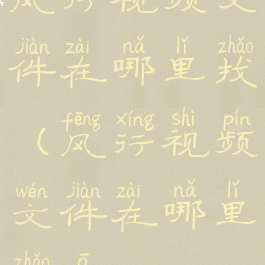 风行视频文
jiàn zài nǎ lǐ zhǎo
件在哪里找
fēng xíng shì pín
(风行视频
wén jiàn zài nǎ lǐ
文件在哪里
zhǎo